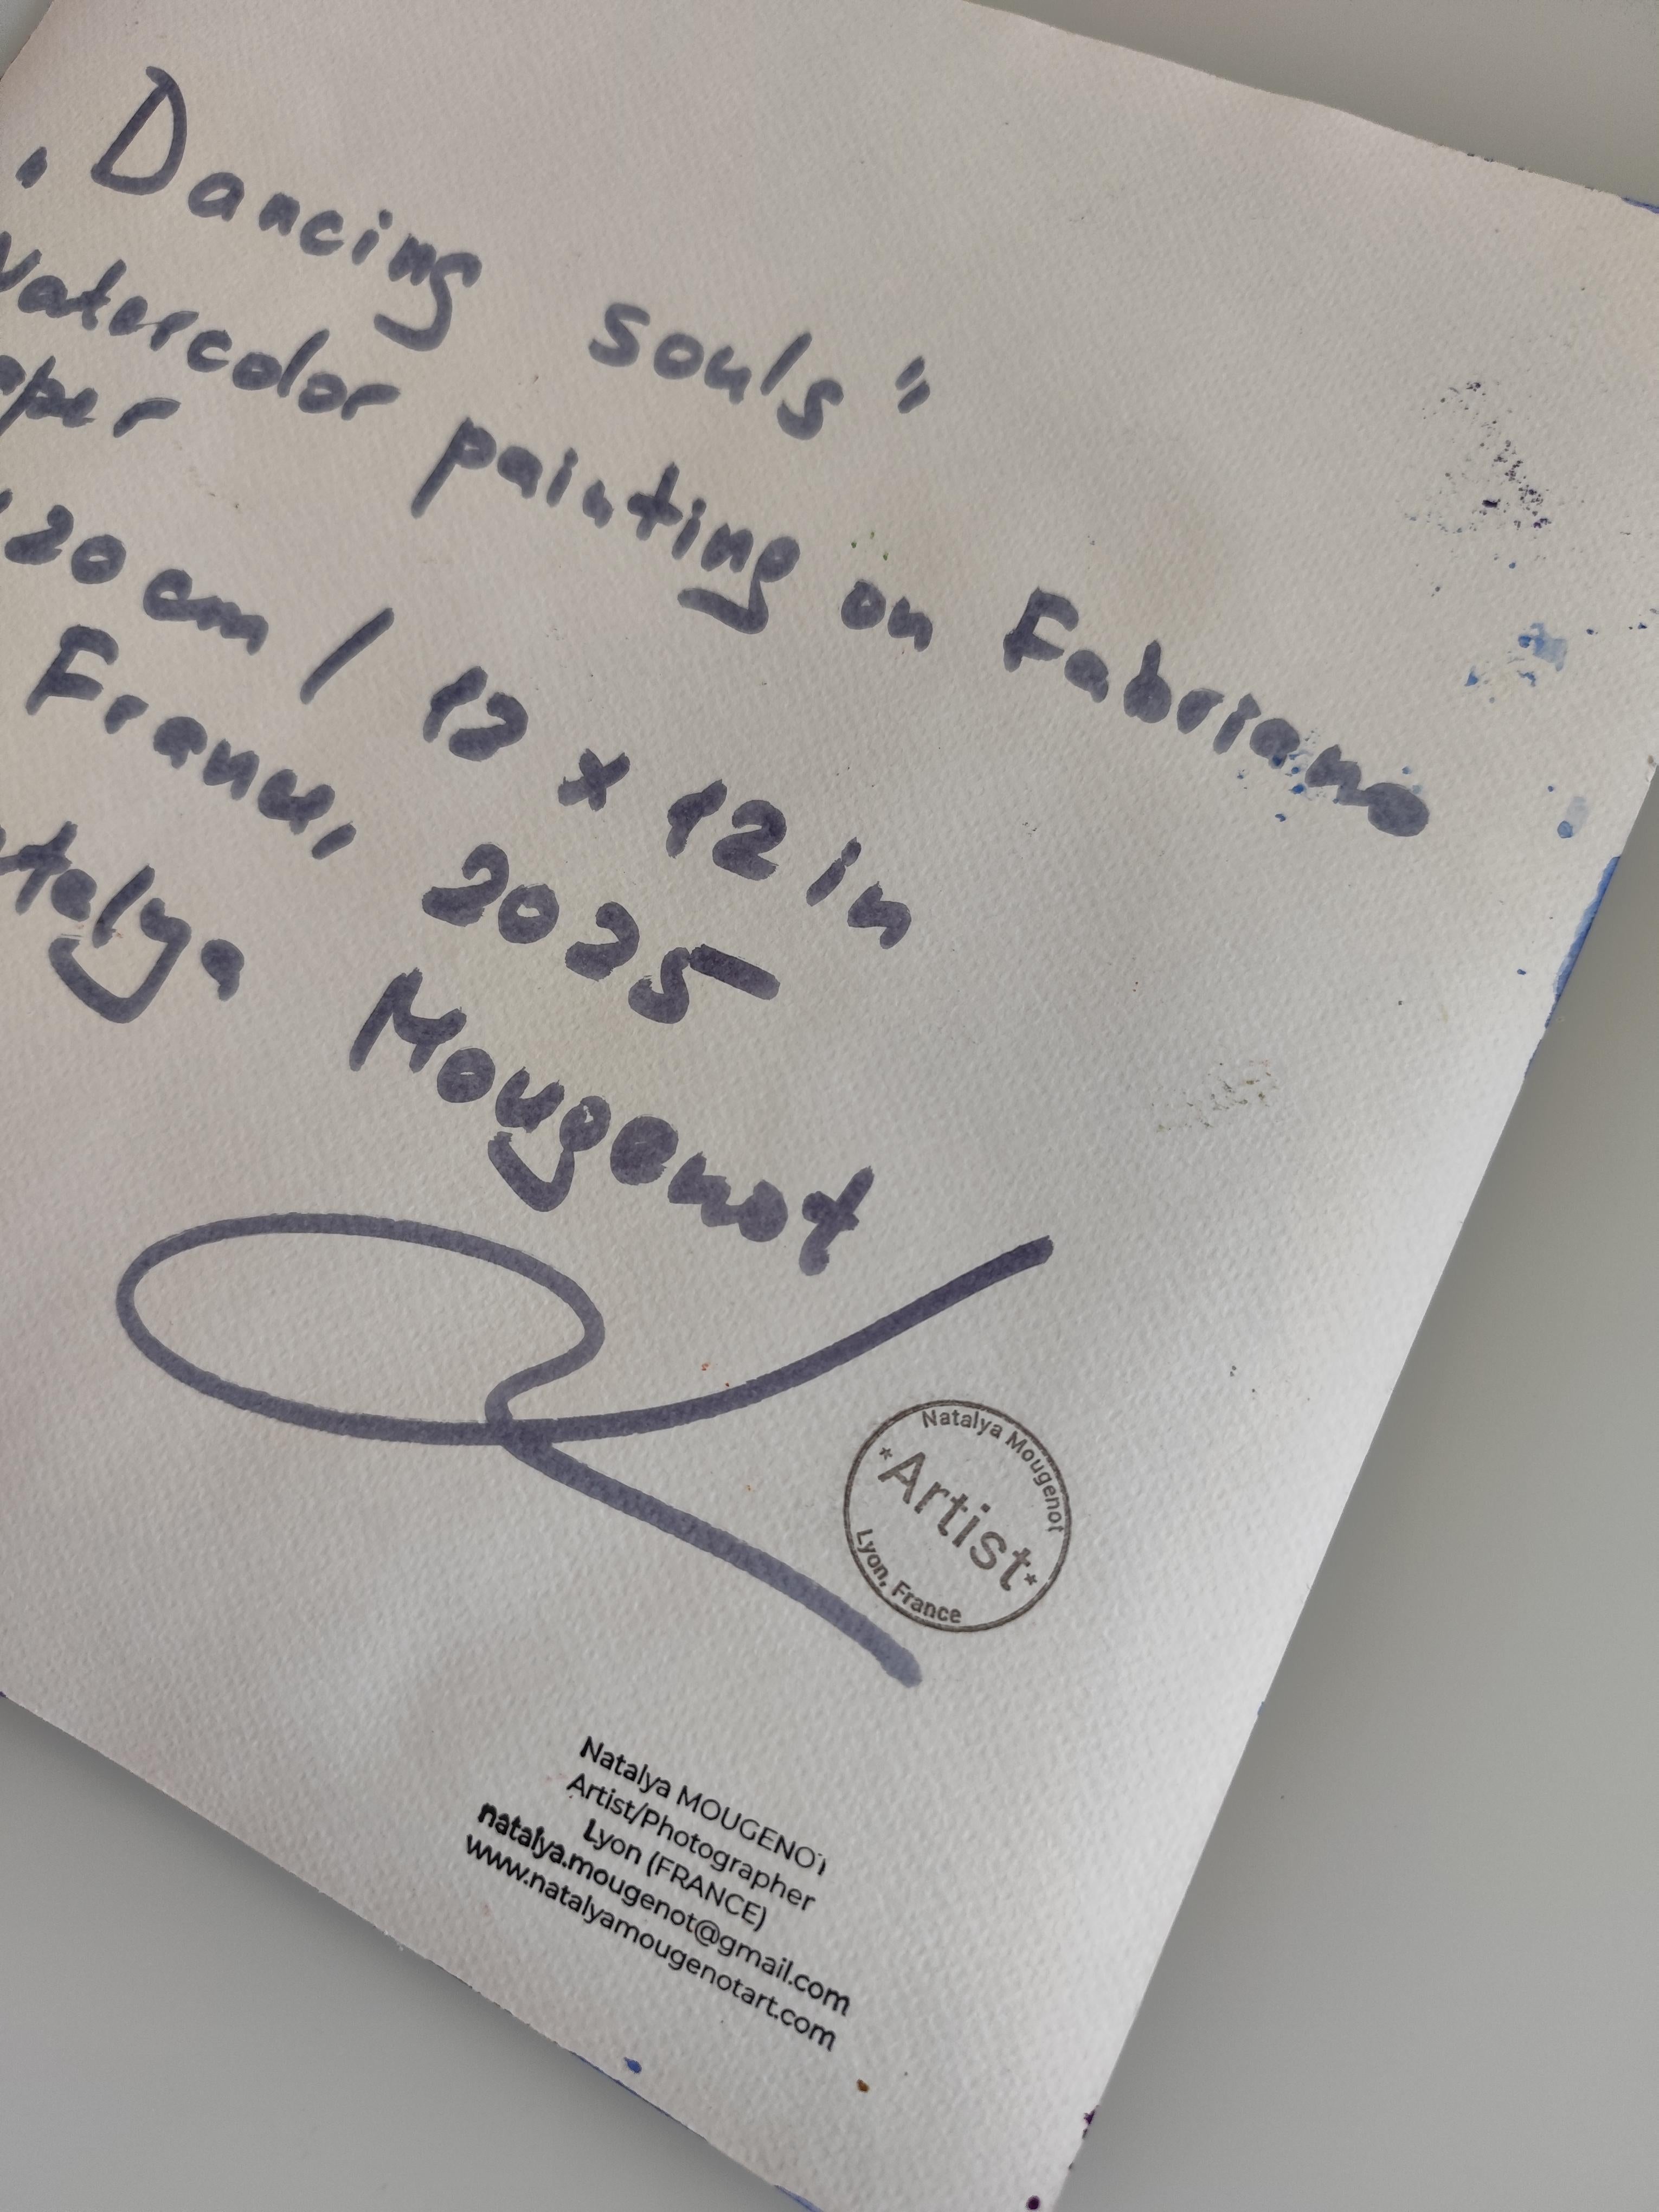 "Dancing souls"
Watercolor painting on Fabriano
aper
20 cm / 12 x 12 in
France, 2025
talya Mougenot
Natalya Mougenot
*Artist*
Lyon, France
Natalya MOUGENOT
Artist/Photographer
Lyon (FRANCE)
natalya.mougenot@gmail.com
www.natalyamougenotart.com